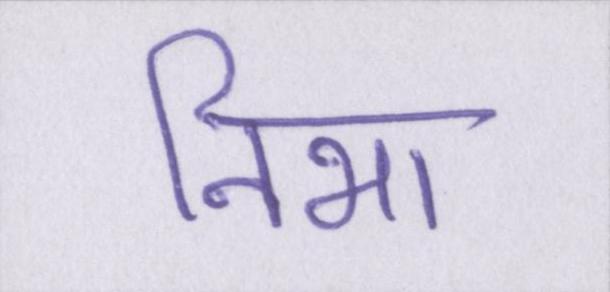 निभा